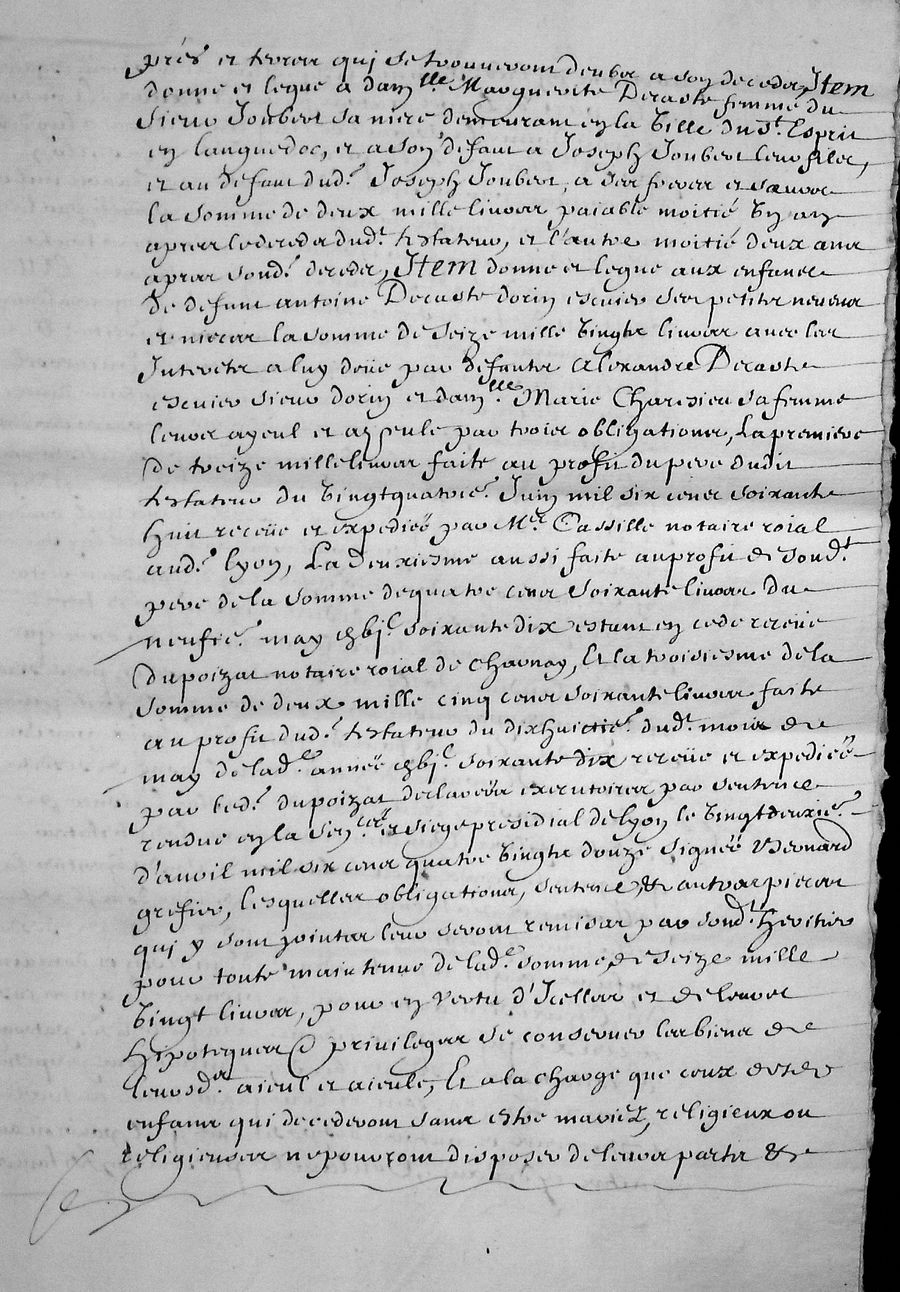 prés et terres qui se trouveront deubes a son deceder, Item
donne et legue a dam.lle Marguerite Decaste femme du
sieur Joubert sa niece demeurant en la ville du St. Esprit
en languedoc, et a son defaut a Joseph Joubert leur filz,
et au defaut dud.t Joseph Joubert, a ses freres et sœurs
la somme de deux mille livres paiable moitié un an
apres le deceds dud.t testateur, et l'autre moitié deux ans
apres sond.t deceds, Item donne et legue aux enfans
de defunt antoine Decaste dorin escuier ses petits neveux
et nieces la somme de seize mille vingts livres avec les
Interets a luy deüe par defunts Alexandre Decaste
escuier sieur dorin et dam.lle Marie Charesieu sa femme
leurs ayeul et ayeule par trois obligations, La premiere
de treize mille livres faite au profit du pere dudit
testateur du vingtquatrie.e Juin mil six cens soixante
huit receüe et expediée par Me. Cassille notaire roial
aud.t lyon, La deuxiesme aussi faite au profit de sond.t
pere de la somme de quatre cens soixante livres du
neufie.e may gbjc soixante dix estant en cede receüe
Dupoizat notaire roial de Charnay, Et la troisiesme de la
somme de deux mille cinq cens soixante livres faite
au profit dud.t testateur du dixhuictie.e dud.t mois de
may de lad.e année gbjc soixante dix receüe et expediée
par led.t dupoizat declarées executoires par sentence
rendue en la sen.cée et siege presidial de lyon le vingtdeuxie.e
d'avril mil six cens quatre vingts douze signée Bernard
grefier, lesquelles obligations, sentence, & autres pieces
qui y sont jointes leur seront remises par sond.t heritier
pour toute maintenue de lad.e somme de seize mille
vingt livres, pour en vertu d'Icelles et de leurs
hipoteques & privileges se conserver les biens de
leursd.s aieul et aieule, Et a la charge que ceux desd.s
enfans qui decederont sans estre mariez, religieux ou
religieuses ne pourront disposer de leurs parts &